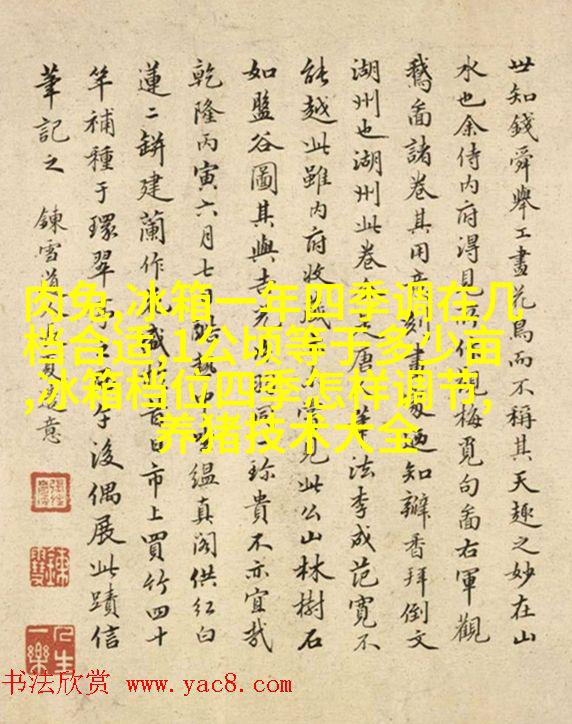 世知錢舜舉工畫花鳥而不稱其天趣之妙在山
水也余侍内府得見 梅覓句啚右軍觀
鵝啚諸卷其用 刻畫 迺知辦香拜倒文
湖州也湖州此卷 唐 法李成范寬不
能越此雖内府收 此公山林樹石
如盤谷圖其與 珍貴不亦宜哉
乾隆丙寅六月七 縕真阁供红白
蓮二缾建蘭作 百日市上買竹四十
竿補種于環翠 後偶展此蹟信
筆記之 鍊雪道 意
肉兔,冰箱一年四季调在几
档合适,1公顷等于多少亩
,冰箱档位四季怎样调节,
养猪技术大全
人生一樂
书法欣赏 www.yac8.com